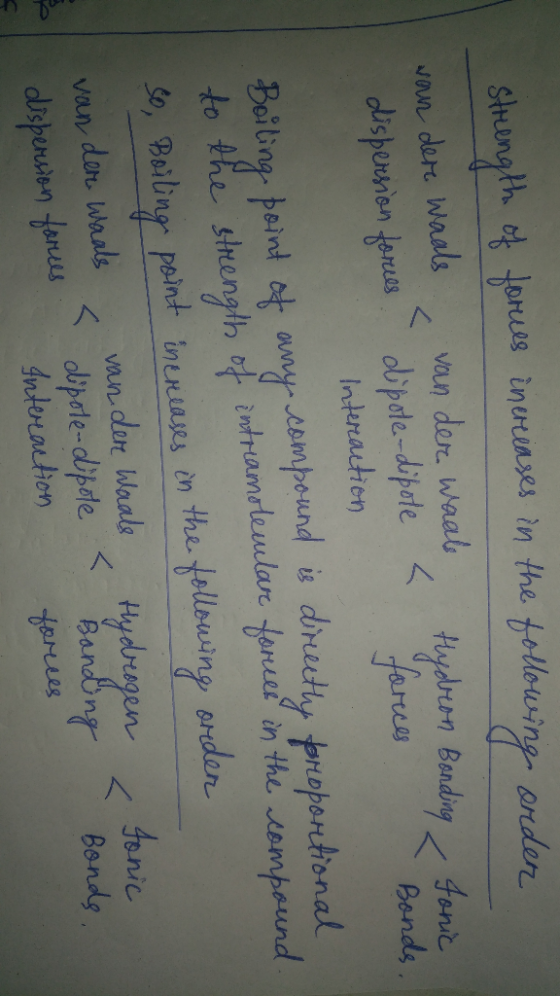 Strength of forces increases in the following order
van der waals < van der waals < Hydron Bonding < Ionic
dispersion forces dipole-dipole forces Bonds.
Interaction
Boiling point of any compound is directly proportional
to the strength of intramolecular forces in the compound.
So, Boiling point increases in the following order
van der waals < van der waals < Hydrogen < Ionic
dispersion forces dipole-dipole Bonding Bonds.
Interaction forces